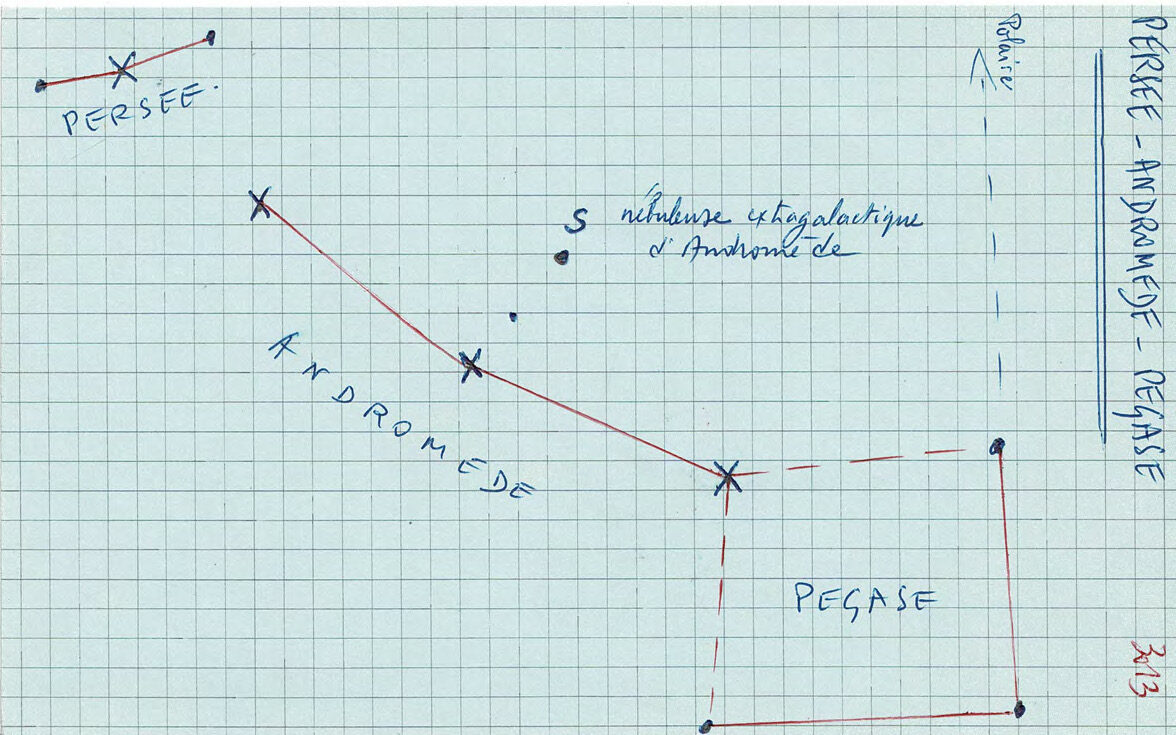 PERSEE - ANDROMEDE - PEGASE
Polaire
PERSEE.
S
nébuleuse extragalactique
d'Andromède
ANDROMEDE
PEGASE
3013